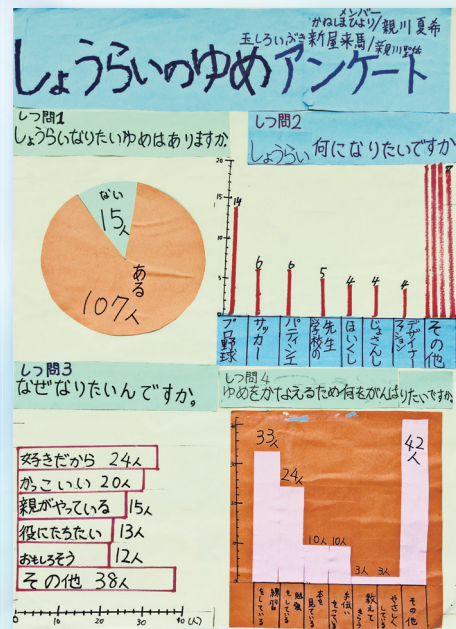 メンバー
かねしまひより/親川夏希
玉しろいぶき 新屋来馬/
しょうらいのゆめアンケート
しつ問1
しょうらいなりたいゆめはありますか。
ない
15人
ある
107人
しつ問2
しょうらい何になりたいですか
20
15
10
5
0
14
6
6
5
4
4
4
プロ野球
サッカー
パティシエ
学校の先生
ほいくし
じょさんし
デザイナー
その他
しつ問3
なぜなりたいんですか。
好きだから 24人
かっこいい 20人
親がやっている 15人
役にたちたい 13人
おもしろそう 12人
その他 38人
0 10 20 30 40 (人)
しつ問4
ゆめをかなえるため何をがんばりたいですか。
33人
24人
10人
10人
3人
3人
42人
練習をしている
勉強をしている
本を見ている
手伝い
教えてもらう
やさしくしている
その他